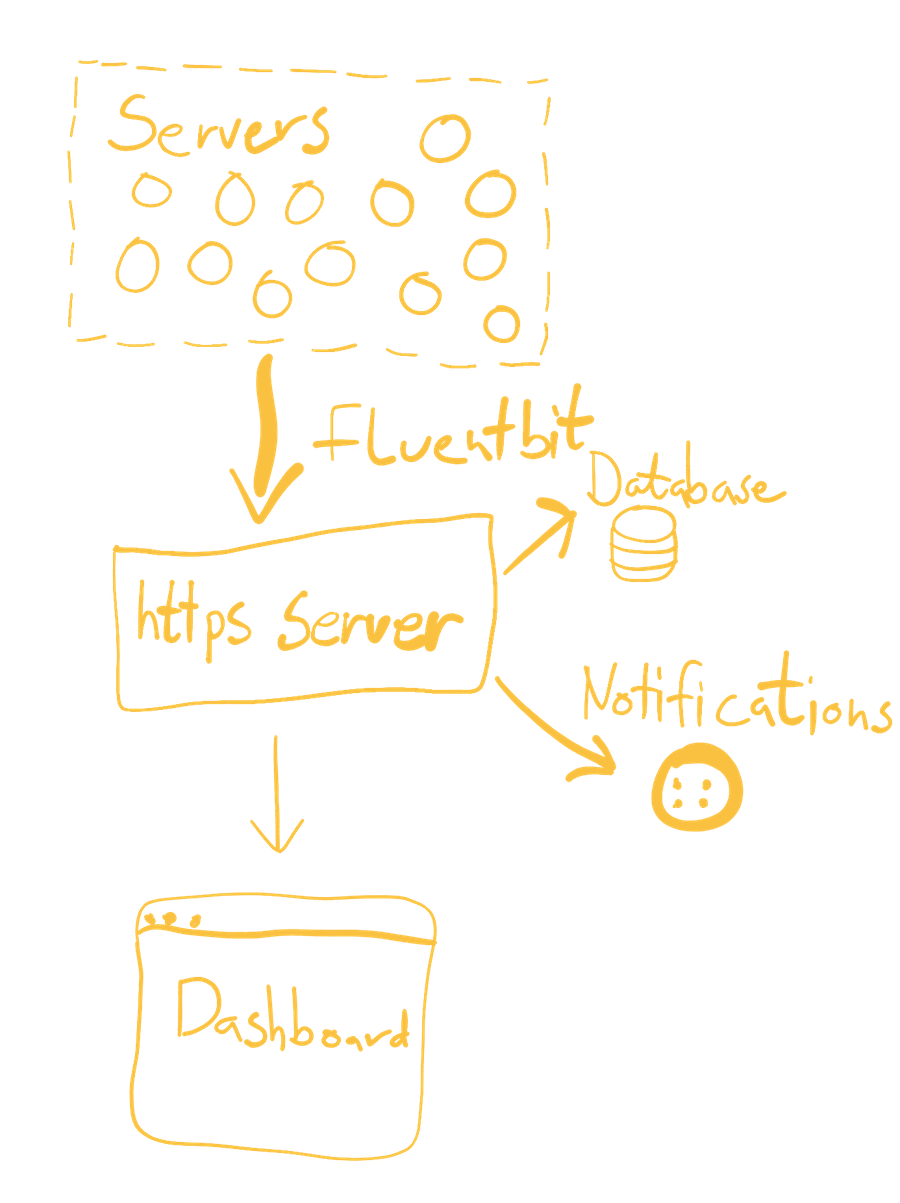 Servers
Fluentbit
Database
https Server
Notifications
Dashboard